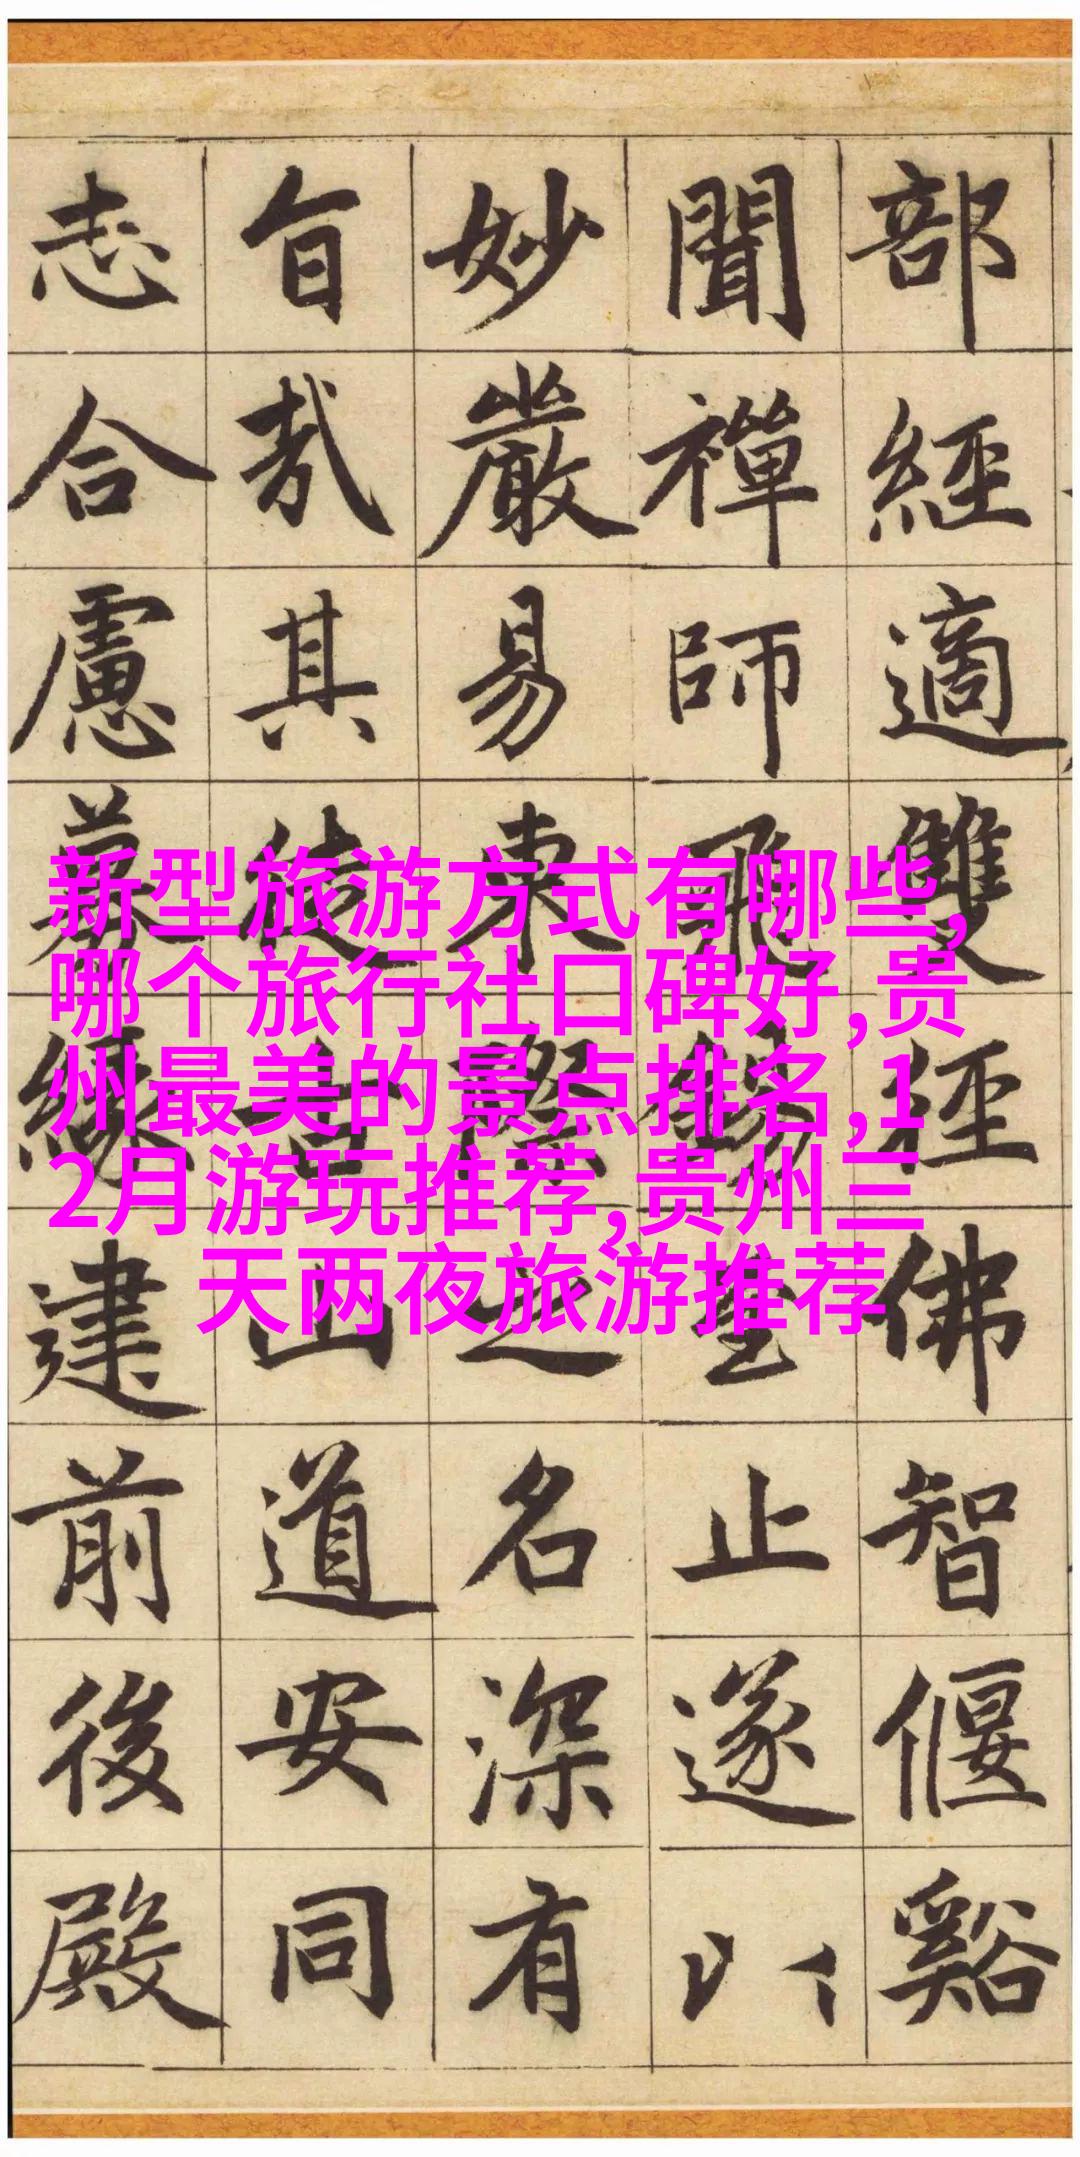 部經適雙徑佛智偃谿
聞禪師飛錫至止遂以
妙嚴易東際之名深有
旨哉其徒古山道安同
志合慮募緣建前後殿
新型旅游方式有哪些,
哪个旅行社口碑好,贵
州最美的景点排名,1
2月游玩推荐,贵州三
天两夜旅游推荐